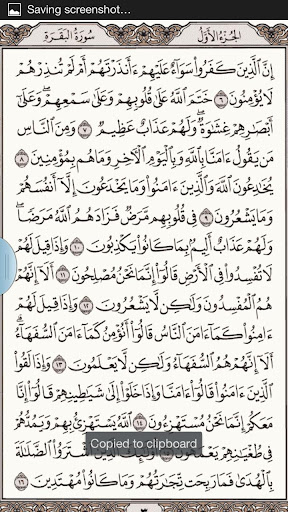 Saving screenshot...
سُورَةُ البَقَرَةِ الجُزْءُ الأَوَّلُ
إِنَّ ٱلَّذِينَ كَفَرُواْ سَوَآءٌ عَلَيْهِمْ ءَأَنذَرْتَهُمْ أَمْ لَمْ تُنذِرْهُمْ
لَا يُؤْمِنُونَ ٦ خَتَمَ ٱللَّهُ عَلَىٰ قُلُوبِهِمْ وَعَلَىٰ سَمْعِهِمْ ۖ وَعَلَىٰٓ
أَبْصَٰرِهِمْ غِشَٰوَةٌ ۖ وَلَهُمْ عَذَابٌ عَظِيمٌ ٧ وَمِنَ ٱلنَّاسِ
مَن يَقُولُ ءَامَنَّا بِٱللَّهِ وَبِٱلْيَوْمِ ٱلْأَخِرِ وَمَا هُم بِمُؤْمِنِينَ ٨
يُخَٰدِعُونَ ٱللَّهَ وَٱلَّذِينَ ءَامَنُواْ وَمَا يَخْدَعُونَ إِلَّآ أَنفُسَهُمْ
وَمَا يَشْعُرُونَ ٩ فِى قُلُوبِهِم مَّرَضٌ فَزَادَهُمُ ٱللَّهُ مَرَضًا ۖ
وَلَهُمْ عَذَابٌ أَلِيمٌۢ بِمَا كَانُواْ يَكْذِبُونَ ١٠ وَإِذَا قِيلَ لَهُمْ
لَا تُفْسِدُواْ فِى ٱلْأَرْضِ قَالُوٓاْ إِنَّمَا نَحْنُ مُصْلِحُونَ ١١ أَلَآ إِنَّهُمْ
هُمُ ٱلْمُفْسِدُونَ وَلَٰكِن لَّا يَشْعُرُونَ ١٢ وَإِذَا قِيلَ لَهُمْ
ءَامِنُواْ كَمَآ ءَامَنَ ٱلنَّاسُ قَالُوٓاْ أَنُؤْمِنُ كَمَآ ءَامَنَ ٱلسُّفَهَآءُ ۗ
أَلَآ إِنَّهُمْ هُمُ ٱلسُّفَهَآءُ وَلَٰكِن لَّا يَعْلَمُونَ ١٣ وَإِذَا لَقُواْ
ٱلَّذِينَ ءَامَنُواْ قَالُوٓاْ ءَامَنَّا وَإِذَا خَلَوْاْ إِلَىٰ شَيَٰطِينِهِمْ قَالُوٓاْ إِنَّا
مَعَكُمْ إِنَّمَا نَحْنُ مُسْتَهْزِءُونَ ١٤ ٱللَّهُ يَسْتَهْزِئُ بِهِمْ وَيَمُدُّهُمْ
فِى طُغْيَٰنِهِمْ يَعْمَهُونَ ٱشْتَرَوُاْ ٱلضَّلَٰلَةَ
Copied to clipboard
بِٱلْهُدَىٰ فَمَا رَبِحَت تِّجَٰرَتُهُمْ وَمَا كَانُواْ مُهْتَدِينَ ١٦
٣